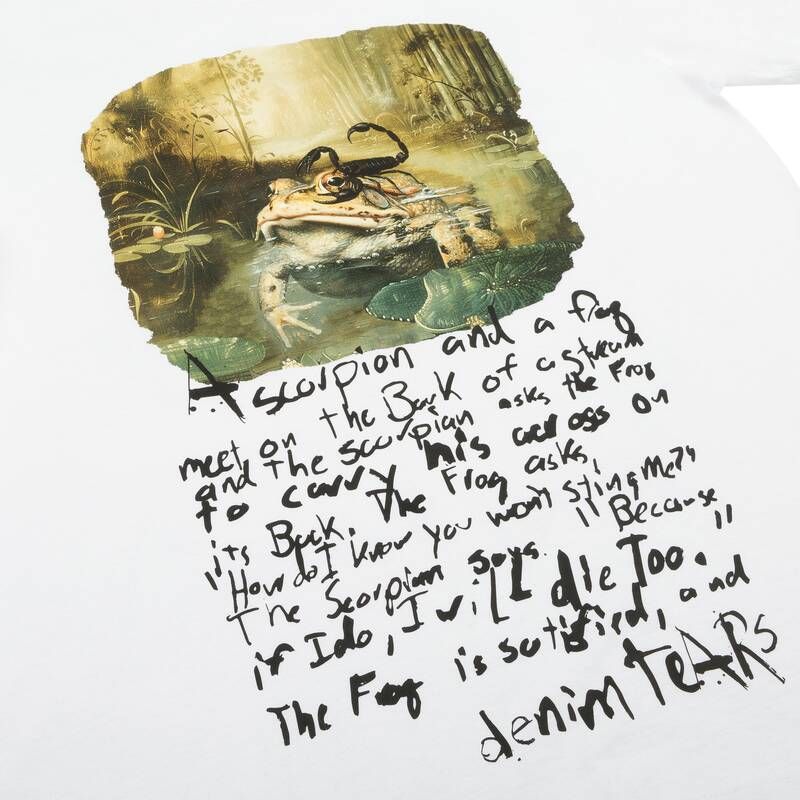 A scorpion and a frog
meet on the Bank of a stream
and the scorpian asks the Frog
to carry his across on
its Back. The Frog asks,
"How do I know you won't sting Me?"
The Scorpian says. "Because
if I do, I will die Too."
The Frog is satisfied, and
denim teARs